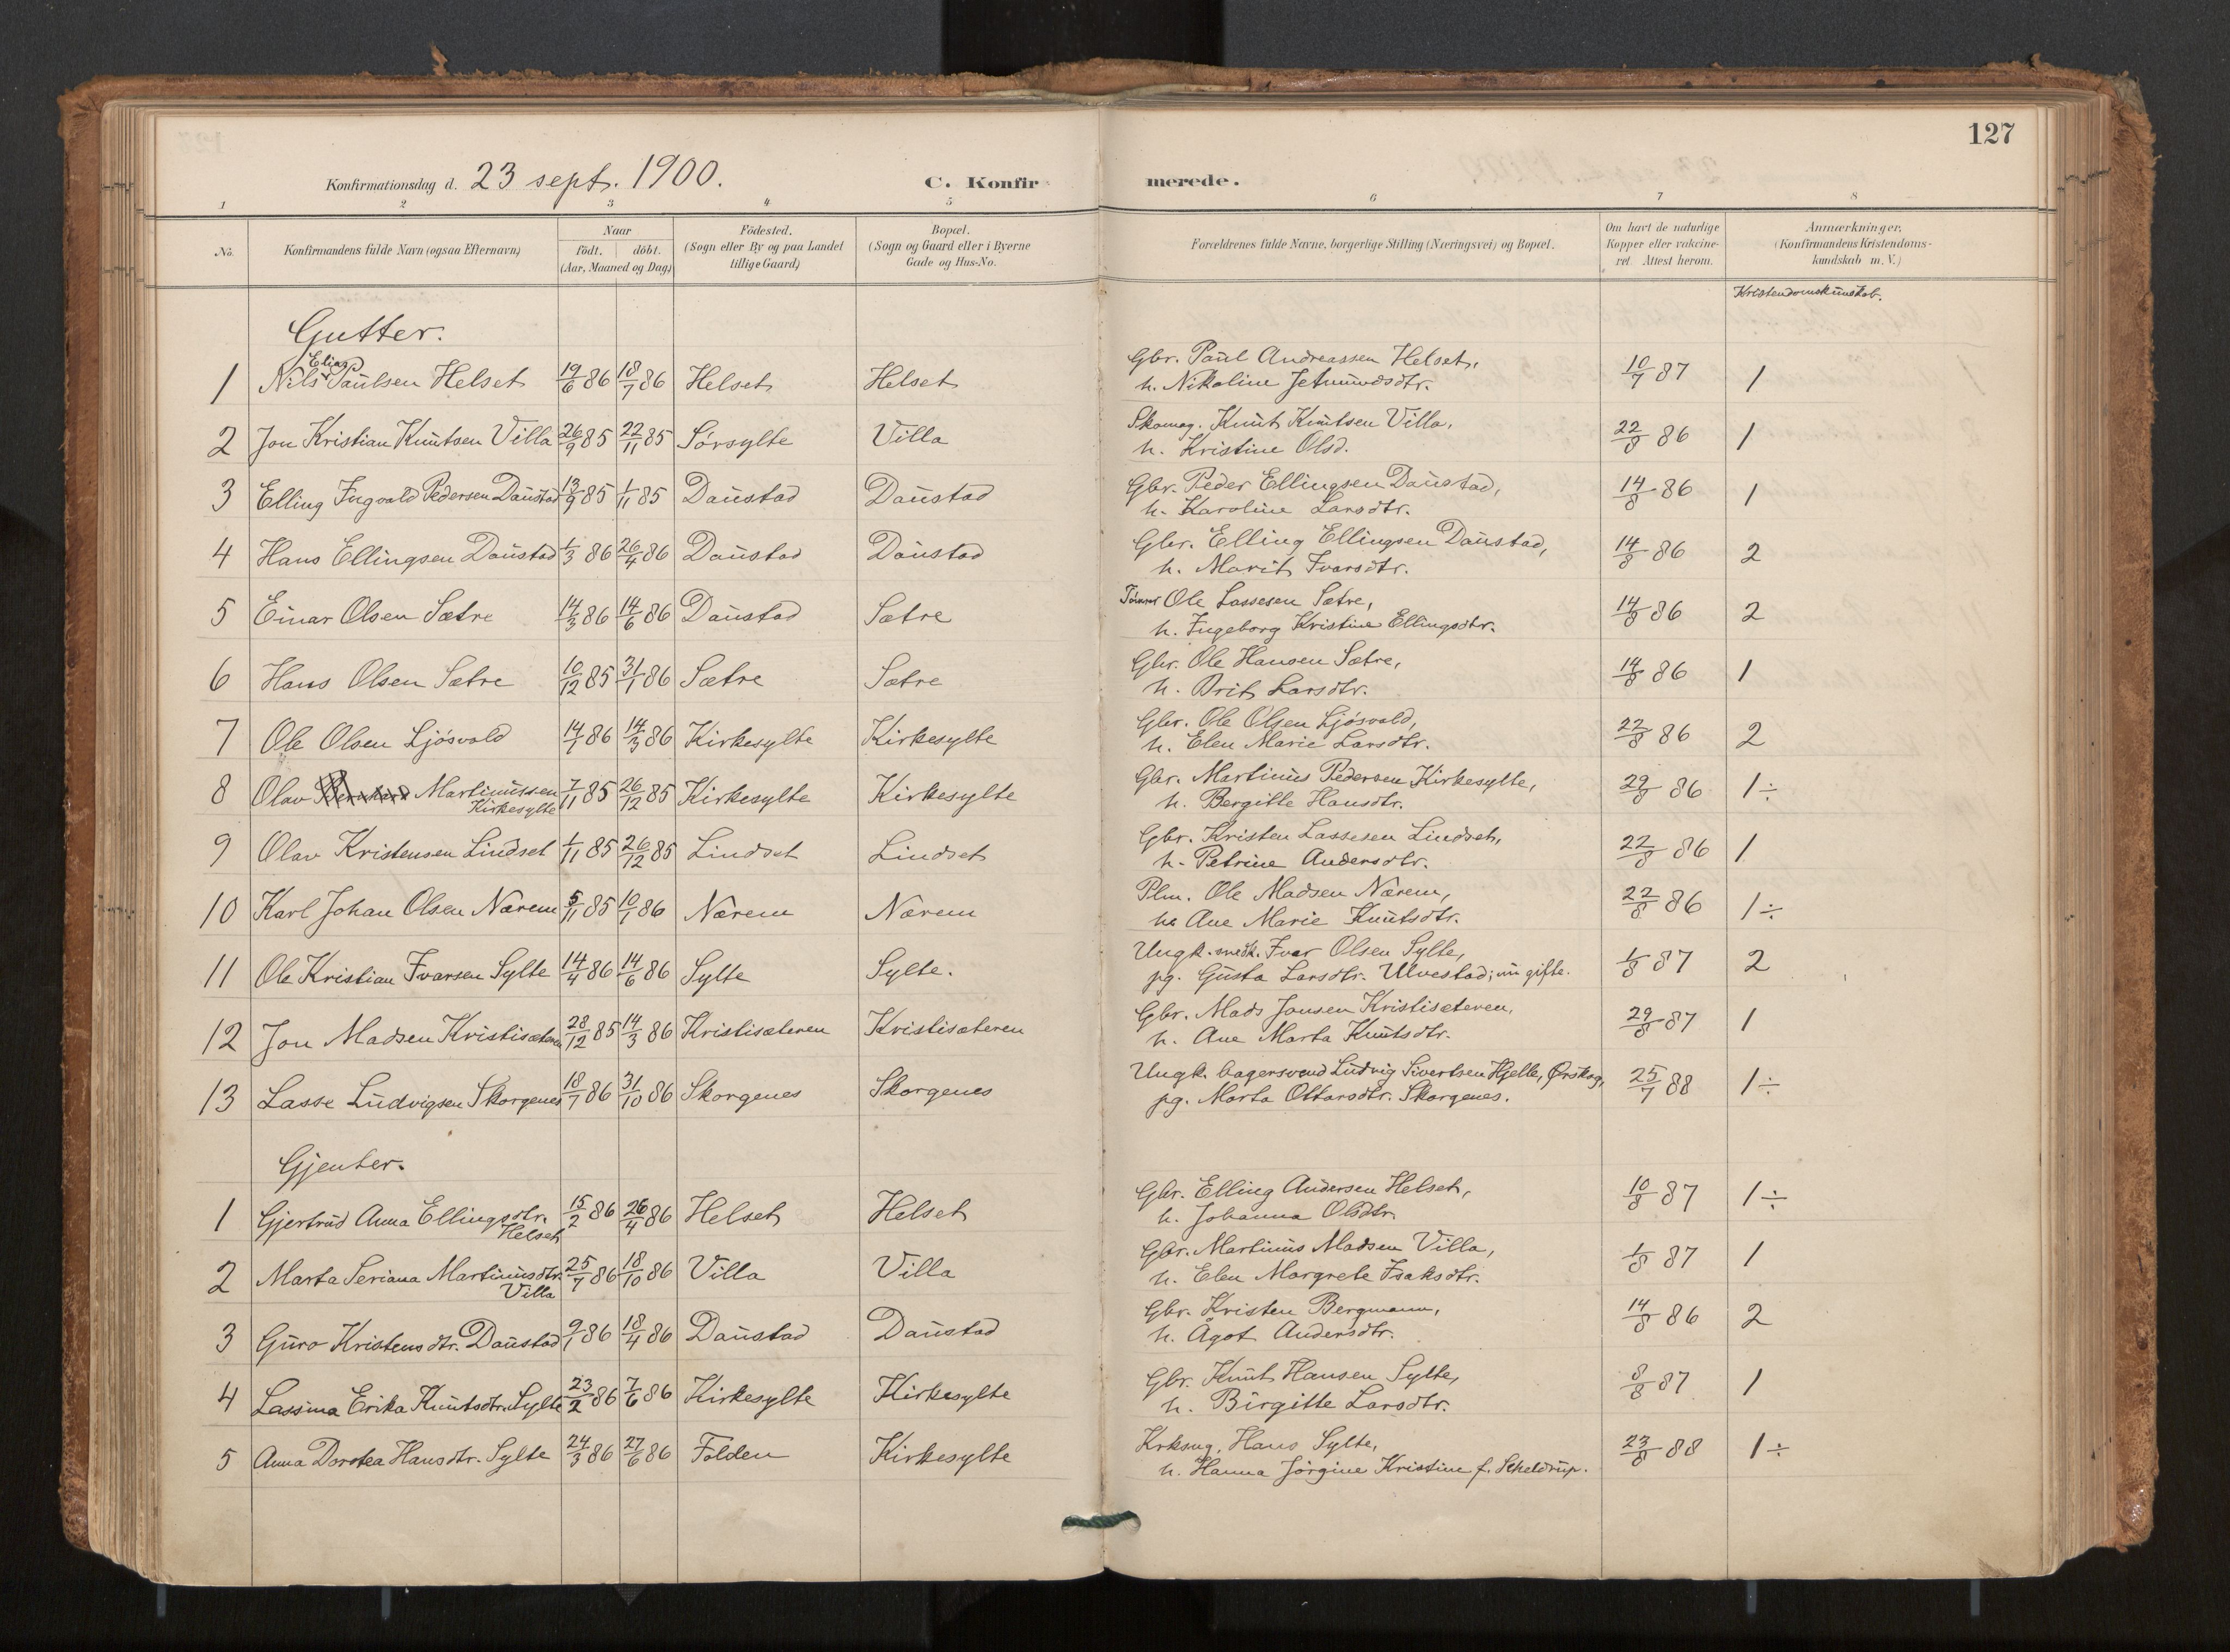 127
Konfirmationsdag d. 23 sept. 1900. C. Konfirmerede.
1 2 3 4 5 6 7 8
No. Konfirmandens fulde Navn (ogsaa Efternavn) Naar født. døbt. (Aar, Maaned og Dag) Fødested. (Sogn eller By og paa Landet tillige Gaard) Bopæl. (Sogn og Gaard eller i Byerne Gade og Hus-No. Forældrenes fulde Navne, borgerlige Stilling (Næringsvei) og Bopæl. Om havt de naturlige Kopper eller vakcineret. Attest herom. Anmærkninger, (Konfirmandens Kristendomskundskab m.V.)
Kristendomskunskab.
Gutter.
1 Nils Elias Paulsen Helset 19/6 86 18/7 86 Helset Helset Gbr. Paul Andreassen Helset, h. Nikoline Jetmundsdtr. 10/7 87 1
2 Jon Kristian Knutsen Villa 26/9 85 22/11 85 Sørsylte Villa Skomag. Knut Knutsen Villa, h. Kristine Olsd. 22/8 86 1
3 Elling Ingvald Pedersen Daustad 13/9 85 1/11 85 Daustad Daustad Gbr. Peder Ellingsen Daustad, h. Karoline Larsdtr. 14/8 86 1
4 Hans Ellingsen Daustad 1/3 86 26/4 86 Daustad Daustad Gbr. Elling Ellingsen Daustad, h. Marit Ivarsdtr. 14/8 86 2
5 Einar Olsen Sætre 14/3 86 14/6 86 Daustad Sætre Ole Lassesen Sætre, h. Ingeborg Kristine Ellingsdtr. 14/8 86 2
6 Hans Olsen Sætre 10/12 85 31/1 86 Sætre Sætre Gbr. Ole Hansen Sætre, h. Brit Larsdtr. 14/8 86 1
7 Ole Olsen Ljösvold 14/1 86 14/3 86 Kirkesylte Kirkesylte Gbr. Ole Olsen Ljösvold, h. Elen Marie Larsdtr. 22/8 86 2
8 Olav Martinussen Kirkesylte 7/11 85 26/12 85 Kirkesylte Kirkesylte Gbr. Martinus Pedersen Kirkesylte, h. Bergitte Hansdtr. 29/8 86 1÷
9 Olav Kristensen Lindset 1/11 85 26/12 85 Lindset Lindset Gbr. Kristen Lassesen Lindset, h. Petrine Andersdtr. 22/8 86 1
10 Karl Johan Olsen Nærem 5/11 85 10/1 86 Nærem Nærem Plm. Ole Madsen Nærem, h. Ane Marie Knutsdtr. 22/8 86 1÷
11 Ole Kristian Ivarsen Sylte 14/4 86 14/6 86 Sylte Sylte. Ungk. snedk. Ivar Olsen Sylte, pg. Gusta Larsdtr. Ulvestad; nu gifte. 1/8 87 2
12 Jon Madsen Kristisæteren 28/12 85 14/3 86 Kristisæteren Kristisæteren Gbr. Mads Jonsen Kristisæteren, h. Ane Marta Knutsdtr. 29/8 87 1
13 Lasse Ludvigsen Skorgenes 18/7 86 31/10 86 Skorgenes Skorgenes Ungk. bagersvend Ludvig Sivertsen Hjelle, Ørskog, pg. Marta Ottarsdtr. Skorgenes. 25/7 88 1÷
Gjenter.
1 Gjertrud Anna Ellingsdtr. Helset 15/2 86 26/4 86 Helset Helset Gbr. Elling Andersen Helset, h. Johanna Olsdtr. 10/8 87 1÷
2 Marta Seriana Martinusdtr. Villa 25/7 86 18/10 86 Villa Villa Gbr. Martinus Madsen Villa, h. Elen Margrete Isaksdtr. 1/8 87 1
3 Guro Kristensdtr. Daustad 9/1 86 18/4 86 Daustad Daustad Gbr. Kristen Bergmann, h. Ågot Andersdtr. 14/8 86 2
4 Lassina Erika Knutsdtr. Sylte 23/2 86 7/6 86 Kirkesylte Kirkesylte Gbr. Knut Hansen Sylte, h. Birgitte Larsdtr. 8/8 87 1
5 Anna Dorotea Hansdtr. Sylte 24/3 86 27/6 86 Folden Kirkesylte Krksng. Hans Sylte, h. Hanna Jörgine Kristine f. Scheldrup. 23/8 88 1÷